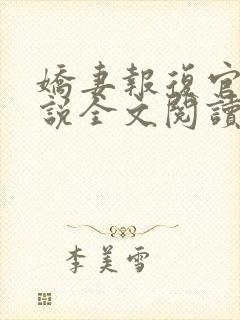 嬌妻報復官
說全文閱讀
李美雪